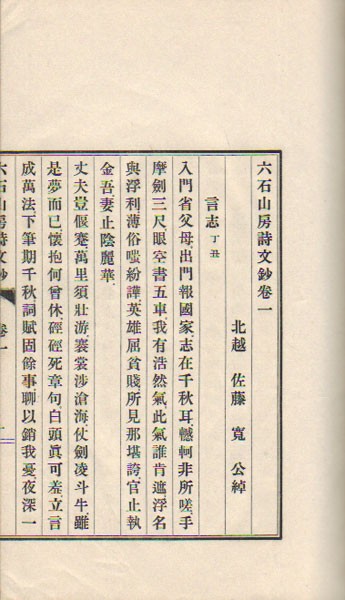 六石山房詩文鈔卷一
北越 佐藤 寬 公綽
言志 丁丑
入門省父母出門報國家志在千秋耳轗軻非所嗟手
摩劍三尺眼空書五車我有浩然氣此氣誰肯遮浮名
與浮利薄俗嗤紛譁英雄屈貧賤所見那堪誇官止執
金吾妻止陰麗華
丈夫豈偃蹇萬里須壯游褰裳涉滄海仗劍凌斗牛雖
是夢而已懷抱何曾休硜硜死章句白頭眞可羞立言
成萬法下筆期千秋詞賦固餘事聊以銷我憂夜深一
六石山房詩文鈔 卷一 一